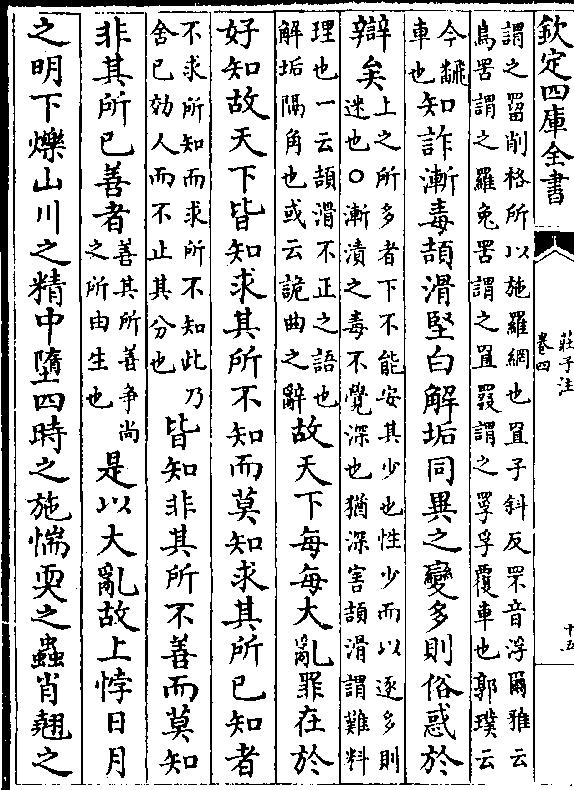 欽定四庫全書
莊子注
卷四
十五
謂之罶削格所以施羅網也罝子斜反罘音浮爾雅云
鳥罟謂之羅兔罟謂之罝罬謂之罦罦覆車也郭璞云
今翻
車也
知詐漸毒頡滑堅白解垢同異之變多則俗惑於
辯矣
上之所多者下不能安其少也性少而以逐多則
迷也○漸漬之毒不覺深也猶深害頡滑謂難料
理也一云頡滑不正之語也
解垢隔角也或云詭曲之辭
故天下每每大亂罪在於
好知故天下皆知求其所不知而莫知求其所已知者
不求所知而求所不知此乃
舍已効人而不止其分也
皆知非其所不善而莫知
非其所已善者
善其所善爭尚
之所由生也
是以大亂故上悖日月
之明下爍山川之精中墮四時之施惴耎之蟲肖翹之